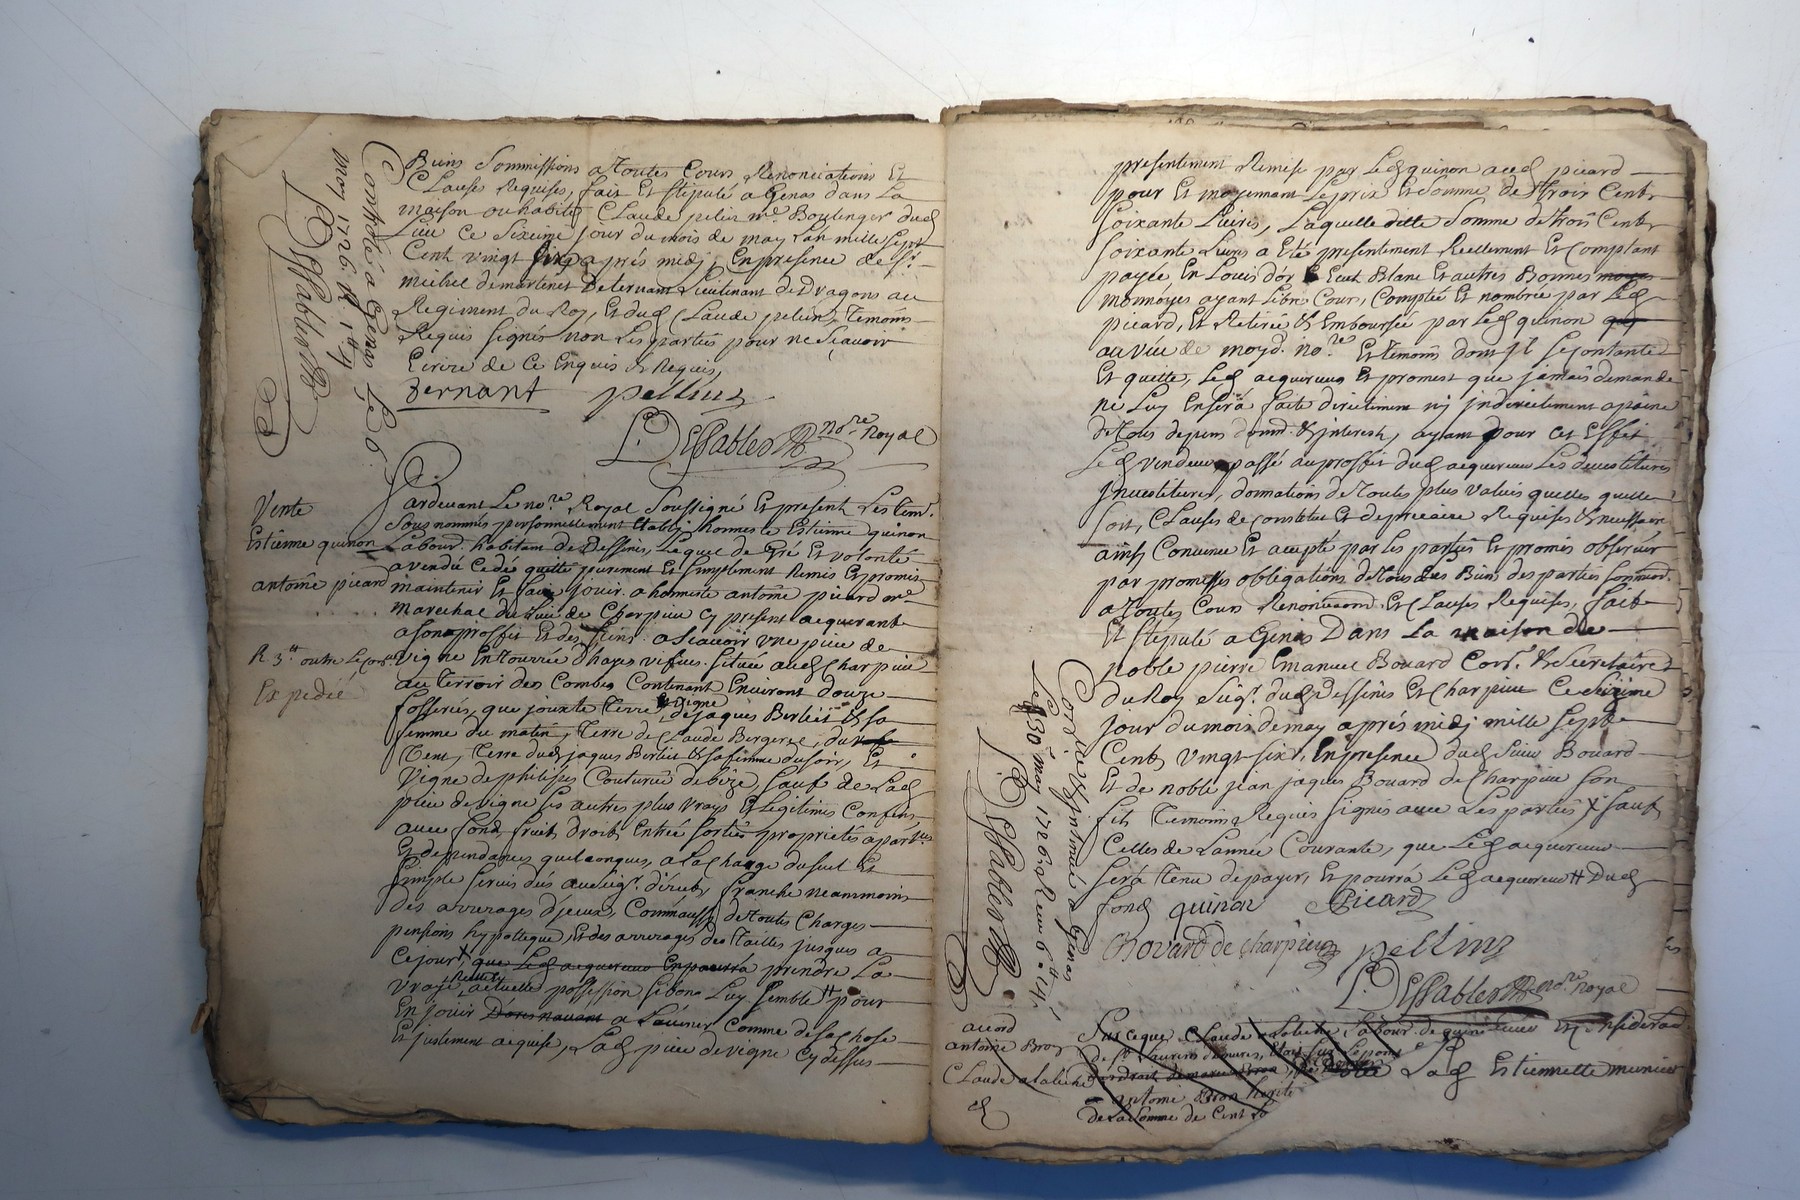 Biens Sommissions a Toutes Cours Renonciations Et
Clauses Requises, fait Et stipulé a Genas dans La
maison ou habite Claude pelin me. Boulenger dud
Lieu ce Sixieme jour du mois de may Lan mille Sept
Cent vingt Six apres midj, En presence de Sr.
michel demartinet De ternant Lieutenant de Dragons au
Regiment du Roy, Et dud Claude pelin, temoins
Requis signés non Les parties pour ne Sçavoir
Ecrire de ce Enquis & Requis,
Bernant pellin
L. DEssables no.re Royal
Controlé a Genas Le 6.
may 1726. R. 1
DEssables
Vente
Estienne quinon
antoine picard
R 3tt outre Le
Expedié
Pardevant Le no.re Royal Soussigné Et present Les tem.
Sous nommés personnellement Etablj honneste Estienne quinon
Labour. habitant de Dessines, Lequel de Gré Et volonté
a vendu Cedé quitté purement Et simplement Remis Et promis
maintenir Et faire jouir. a honneste antoine picard me.
marechal du Lieu de Charpieu Cy present acquerant
a son proffit Et des siens. a Scavoir une piece de
vigne Entourrée d'hayes vifves. Située aud Charpieu
au terroir des Combes Contenant Environt douze
fosserées, que jouxte terre & vigne de jaques Berliet & sa
femme du matin, Terre de Claude Bergeret, du
vent, Terre dud jaques Berliet & sa femme du soir, Et
Vigne de philippes Couturier de bize, Sauf de Lad
piece de vigne Ses autres plus vrays Et Legitimes Confins
avec fond, fruits, droits, Entrée Sorties proprietés apart.ces
Et dependances quelconques, a La Charge du seul Et
Simple servis dûs au Seigr. direct, franche neanmoins
des arrerages d'jceux Comm'aussy de Toutes Charges
pensions hypotteque, Et des arrerages des Tailles jusques a
Ce jour X, que Led acquereur En pourra prendre La
vraye Reelle actuelle possession si bon Luy Semble tt pour
En jouir D'ores navant a Lavenir Comme de sa Chose
Et justement acquise, Lad piece de vigne Cy dessus
presentement Remise par Led quinon aud picard
pour Et moyennant Le prix Et Somme de Trois Cents
Soixante Livres, Laquelle ditte Somme de trois Cents
Soixante Livres a Eté presentement Reellement Et Comptant
payée En Louis d'or Ecus Blanc Et autres Bonnes
monnoyes ayant Libre Cours, Comptée Et nombrée par Led
picard, Et Retirée & Emboursée par Led quinon
au veu de moyd. no.re Et temoins dont jl se Contante
Et quitte, Led acquereur Et promest que jamais demande
ne Luy En sera faite directement nj jndirectement a peine
de Tous depens domm. & jnterests, ayant pour cet Effet
Led vendeur passé au proffit dud acquereur Les devestitures
jnvestitures, donnations de Toutes plus values quelles quelles
soit, Clauses de Constitut Et de precaire Requises & necessaire
ainsj Convenu Et accepté par Les parties Et promis observer
par promesses obligations de Tous Les Biens des parties Sommiss.
a Toutes Cours Renonciations Et Clauses Requises, fait
Et stipulé a Genas Dans La maison de
noble pierre Emanuel Bovard Cons. & Secretaire
du Roy Seigr. dud Dessines Et Charpieu Ce Sixieme
jour du mois de may aprés midj mille Sept
Cents vingt Six, En presence dud Sieur Bovard
Et de noble jean jaques Bovard de Charpieu Son
fils Temoins Requis Signés avec Les parties X sauf
Celles de Lannée Courante, que Led acquereur
sera tenu de payer, Et pourra Led acquereur tt Dud
fond quinon Picard
Bovard de charpieu pellin
L. DEssables no.re Royal
Controllé & jnsinué a Genas
Le 30 may 1726. Receu 6tt 4
DEssables
acord
antoine Broz
Claude alabeche
Sur Ceque Claude
de St. Laurent demures,
antoine
de La Somme de Cent
Lad Estiennette munier